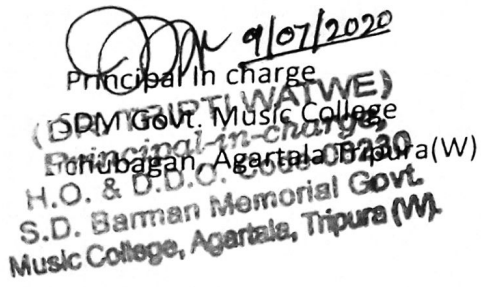 9/07/2020
Principal In charge
SDM Govt. Music College
Agartala Tripura(W)
WATWE)
Principal-in-charge,
H.O. & D.D.O.
S.D. Barman Memorial Govt.
Music College, Agartala, Tripura (W).